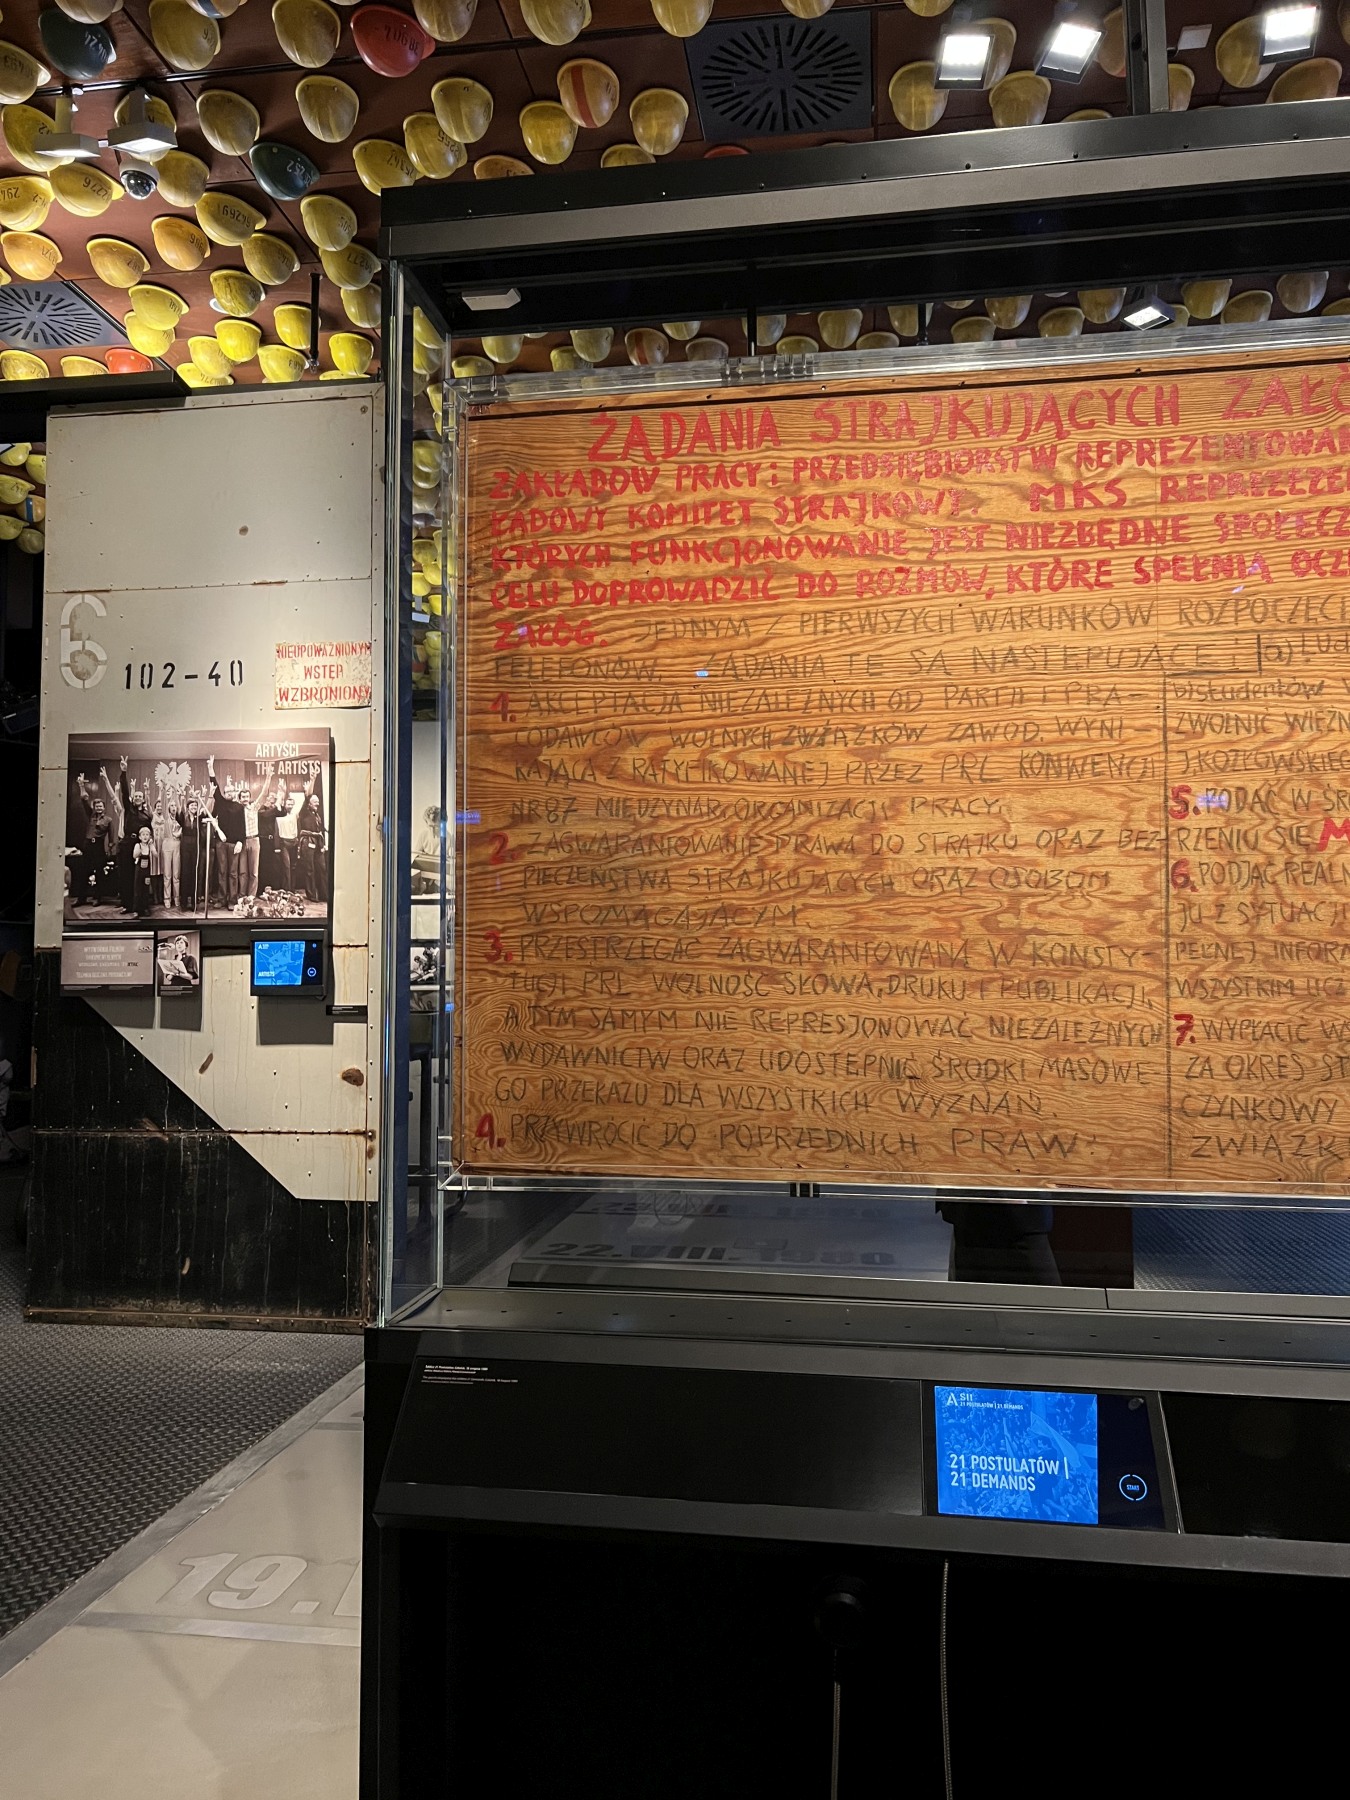 6
102-40
NIEUPOWAŻNIONYM
WSTĘP
WZBRONIONY
ARTYŚCI
THE ARTISTS
ARTISTS
ŻĄDANIA STRAJKUJĄCYCH ZAŁÓ
ZAKŁADOW PRACY i PRZEDSIĘBIORSTW REPREZENTOWAN
ŁADOWY KOMITET STRAJKOWY. MKS REPREZEZE
KTÓRYCH FUNKCJONOWANIE JEST NIEZBĘDNE SPOŁECZ
CELU DOPROWADZIĆ DO ROZMÓW, KTÓRE SPEŁNIĄ OCZE
ZAŁÓG. JEDNYM Z PIERWSZYCH WARUNKÓW ROZPOCZĘCI
TELEFONÓW. ŻĄDANIA TE SĄ NASTĘPUJĄCE:
1. AKCEPTACJA NIEZALEŻNYCH OD PARTII I PRA-
CODAWCÓW WOLNYCH ZWIĄZKÓW ZAWOD. WYNI-
KAJĄCA Z RATYFIKOWANEJ PRZEZ PRL KONWENCJI
NR 87 MIĘDZYNAR. ORGANIZACJI PRACY.
2. ZAGWARANTOWANIE PRAWA DO STRAJKU ORAZ BEZ-
PIECZEŃSTWA STRAJKUJĄCYCH ORAZ OSOBOM
WSPOMAGAJĄCYM
3. PRZESTRZEGAĆ ZAGWARANTOWANĄ W KONSTY-
TUCJI PRL WOLNOŚĆ SŁOWA, DRUKU I PUBLIKACJI,
A TYM SAMYM NIE REPRESJONOWAĆ NIEZALEŻNYCH
WYDAWNICTW ORAZ UDOSTĘPNIĆ ŚRODKI MASOWE-
GO PRZEKAZU DLA WSZYSTKICH WYZNAŃ.
4. PRZYWRÓCIĆ DO POPRZEDNICH PRAW:
a) LUD
b) studentów
ZWOLNIĆ WIĘŹN
J. KOZŁOWSKIEG
5. PODAĆ W ŚR
RZENIU SIĘ M
6. PODJĄĆ REALN
JU Z SYTUACJI
PEŁNEJ INFORM
WSZYSTKIM UCZ
7. WYPŁACIĆ W
ZA OKRES ST
CZYNKOWY
ZWIĄZK
22.VIII.1980
A S11
21 POSTULATÓW | 21 DEMANDS
21 POSTULATÓW |
21 DEMANDS
START
19.